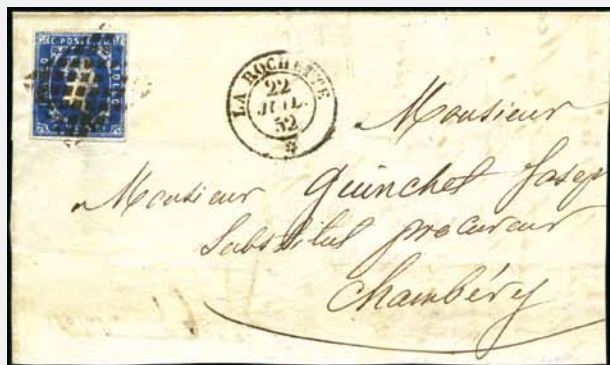 C. POSTE 20
BOLLO
LA ROCHETTE
22
JUIL.
52
Monsieur
Monsieur Guinchet Josep
Substitut procureur
Chambéry